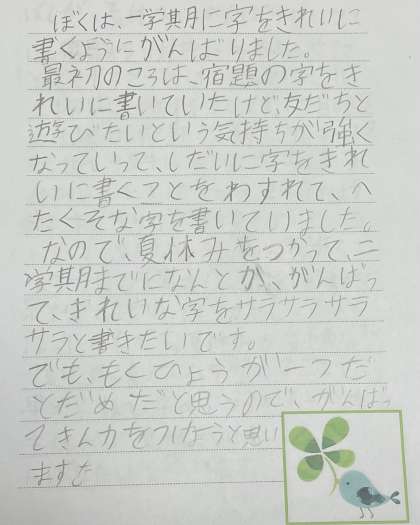 ぼくは、一学期に字をきれいに
書くようにがんばりました。
最初のころは、宿題の字をき
れいに書いていたけど、友だちと
遊びたいという気持ちが強く
なっていって、しだいに字をきれ
いに書くことをわすれて、へ
たくそな字を書いていました。
なので、夏休みをつかって、二
学期までになんとか、がんばっ
て、きれいな字をサラサラサラ
サラと書きたいです。
でも、もくひょうが一つだ
とだめだと思うので、がんばっ
てきん力をつけようと思い
ます